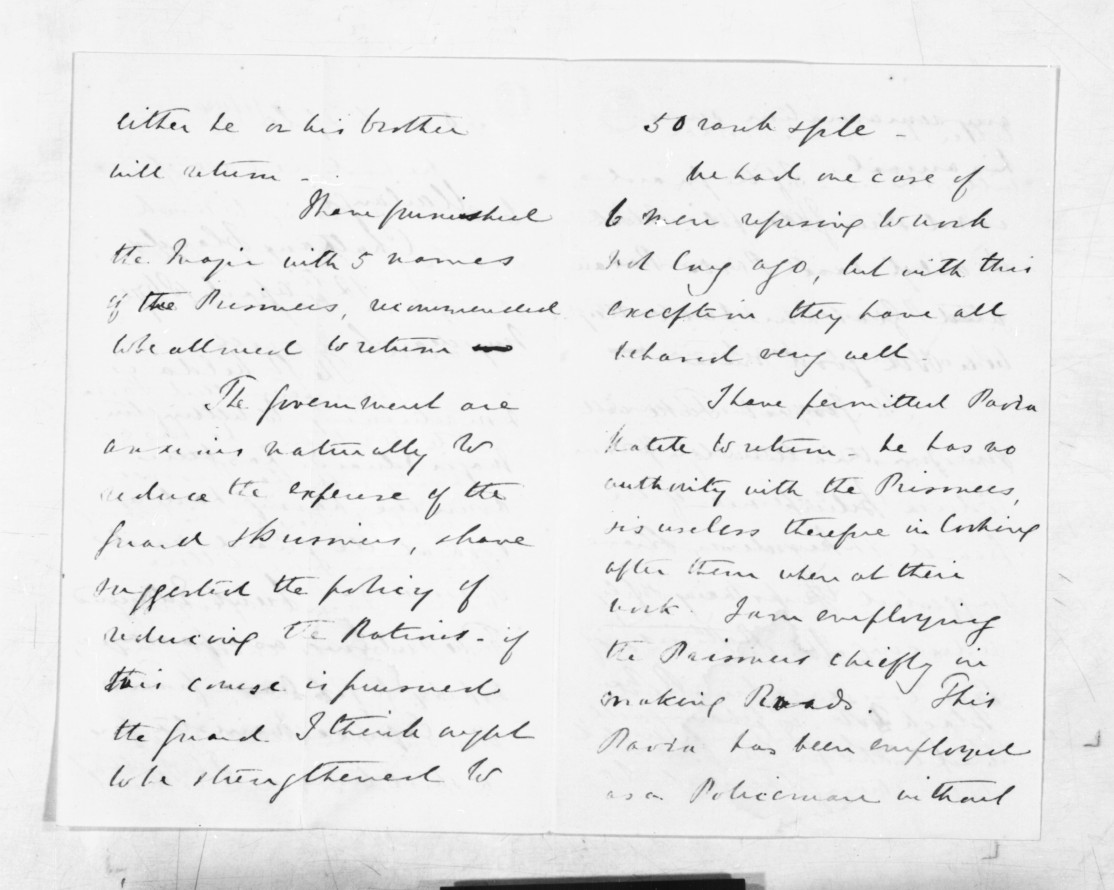 either he or his brother
will return -
I have furnished
the Major with 5 names
of the Prisoners, recommended
to be allowed to return
The Government are
anxious naturally to
reduce the expense of the
Guard & Prisoners, & have
suggested the policy of
reducing the Rations - if
this course is pursued
the guard I think ought
to be strengthened to
50 rank & file -
We had one case of
6 men refusing to work
not long ago, but with this
exception they have all
behaved very well
I have permitted
to return - he has no
authority with the Prisoners,
& is useless therefore in looking
after them when at their
work. I am employing
the Prisoners chiefly in
making Roads. This
has been employed
as a Policeman without